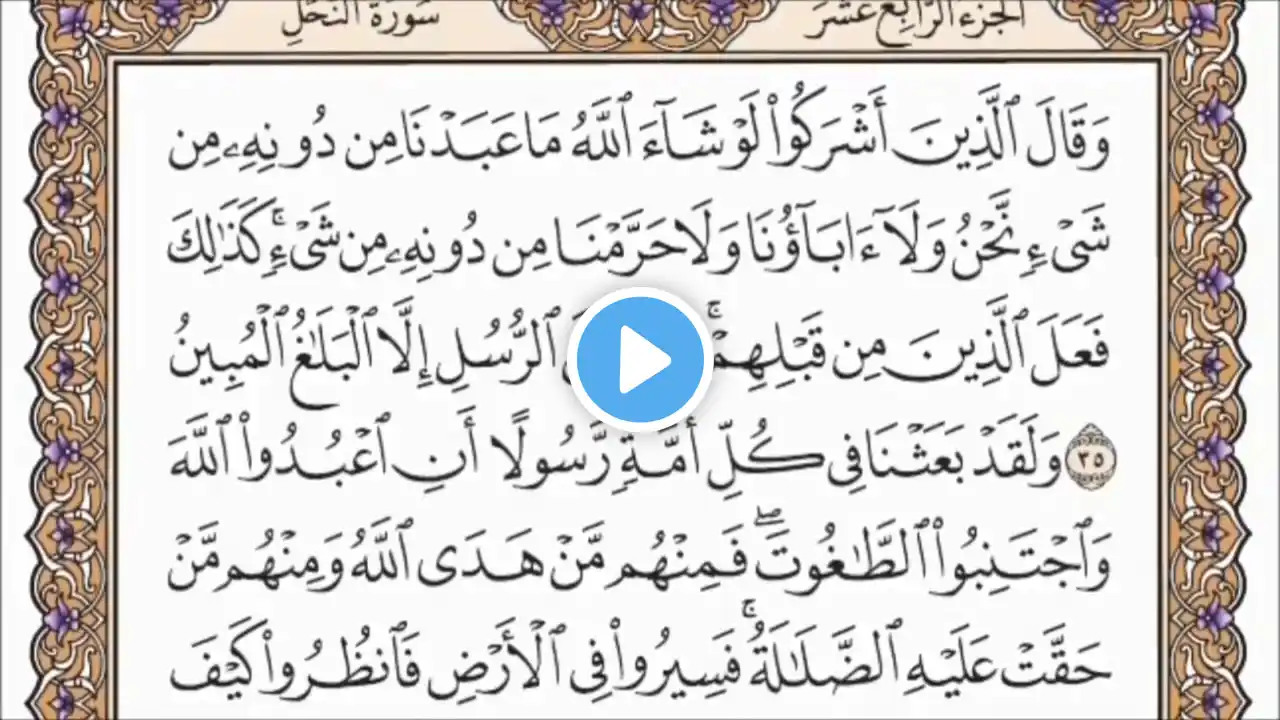 الجزء الرابع عشر
سورة النحل
وَقَالَ ٱلَّذِينَ أَشْرَكُوا۟ لَوْ شَآءَ ٱللَّهُ مَا عَبَدْنَا مِن دُونِهِۦ مِن
شَىْءٍ نَّحْنُ وَلَآ ءَابَآؤُنَا وَلَا حَرَّمْنَا مِن دُونِهِۦ مِن شَىْءٍ ۚ كَذَٰلِكَ
فَعَلَ ٱلَّذِينَ مِن قَبْلِهِمْ ۚ ٱلرُّسُلِ إِلَّا ٱلْبَلَٰغُ ٱلْمُبِينُ
٣٥ وَلَقَدْ بَعَثْنَا فِى كُلِّ أُمَّةٍ رَّسُولًا أَنِ ٱعْبُدُوا۟ ٱللَّهَ
وَٱجْتَنِبُوا۟ ٱلطَّٰغُوتَ ۖ فَمِنْهُم مَّنْ هَدَى ٱللَّهُ وَمِنْهُم مَّنْ
حَقَّتْ عَلَيْهِ ٱلضَّلَٰلَةُ ۚ فَسِيرُوا۟ فِى ٱلْأَرْضِ فَٱنظُرُوا۟ كَيْفَ